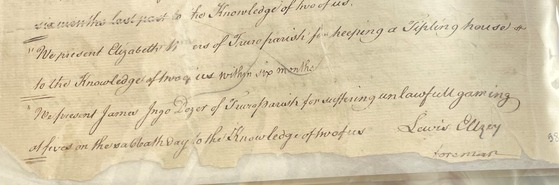 six months last past to the Knowledge of two of us.
"We present Elizabeth W ers of Truro parish for keeping a Tipling house
to the Knowledge of two of us within six months
"We present James Ingo Dozer of Truro parish for suffering unlawfull gaming
at fives on the sabbath day to the Knowledge of two of us
Lewis Ellzey
foreman